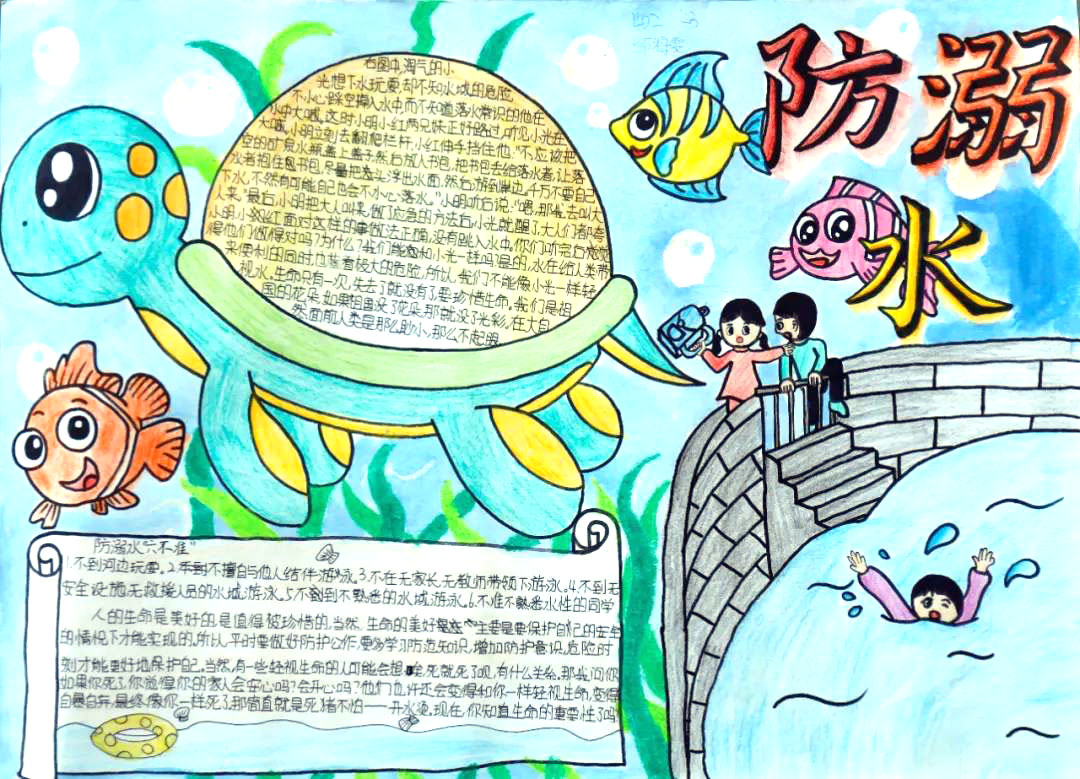 防溺
水
右图中,淘气的小
光想下水玩耍,却不知水域的危险
不小心踩空掉入水中而不知道落水常识的他在
水中大喊,这时小明小红两兄妹正好路过,听见小光在
大喊,小明立刻去翻爬栏杆,小红伸手挡住他:“不应该把
空的矿泉水瓶盖上盖子然后放入书包,把书包丢给落水者,让落
水者抱住包书包,尽量把头浮出水面,然后游到岸边,千万不要自己
下水,不然有可能自己也会不小心落水。”小明听后说:“嗯,那我去叫大
人来”最后,小明把大人叫来,做了应急的方法后小光就醒了,大人们都夸
小明,小红面对这样的事做法正确,没有跳入水中,你们听完后觉
得他们做得对吗?为什么?我们能和小光一样吗?是的,水在给人类带
来便利的同时也藏着极大的危险,所以,我们不能像小光一样轻
视水,生命只有一次,失去了就没有了,要珍惜生命。我们是祖
国的花朵,如果祖国没了花朵,那就没了光彩,在大自
然面前人类是那么渺小,那么不起眼
防溺水“六不准”
1.不到河边玩耍。2.不擅自与他人结伴游泳。3.不在无家长,无教师带领下游泳。4.不到无
安全设施,无救援人员的水域游泳。5.不到不熟悉的水域游泳。6.不准不熟悉水性的同学
人的生命是美好的,是值得被珍惜的,当然,生命的美好主要是要保护自己的安全
的情况下才能实现的。所以,平时要做好防护工作,要学习防范知识,增加防护意识,危险时
刻才能更好地保护自己。当然,有一些轻视生命的人可能会想:唉,死就死了呗,有什么关系,那我问你
如果你死了,你觉得你的家人会安心吗?会开心吗?他们也许还会变得和你一样轻视生命,变得
自暴自弃,最终像你一样死了,那简直就是死猪不怕——开水烫。现在,你知道生命的重要性了吗